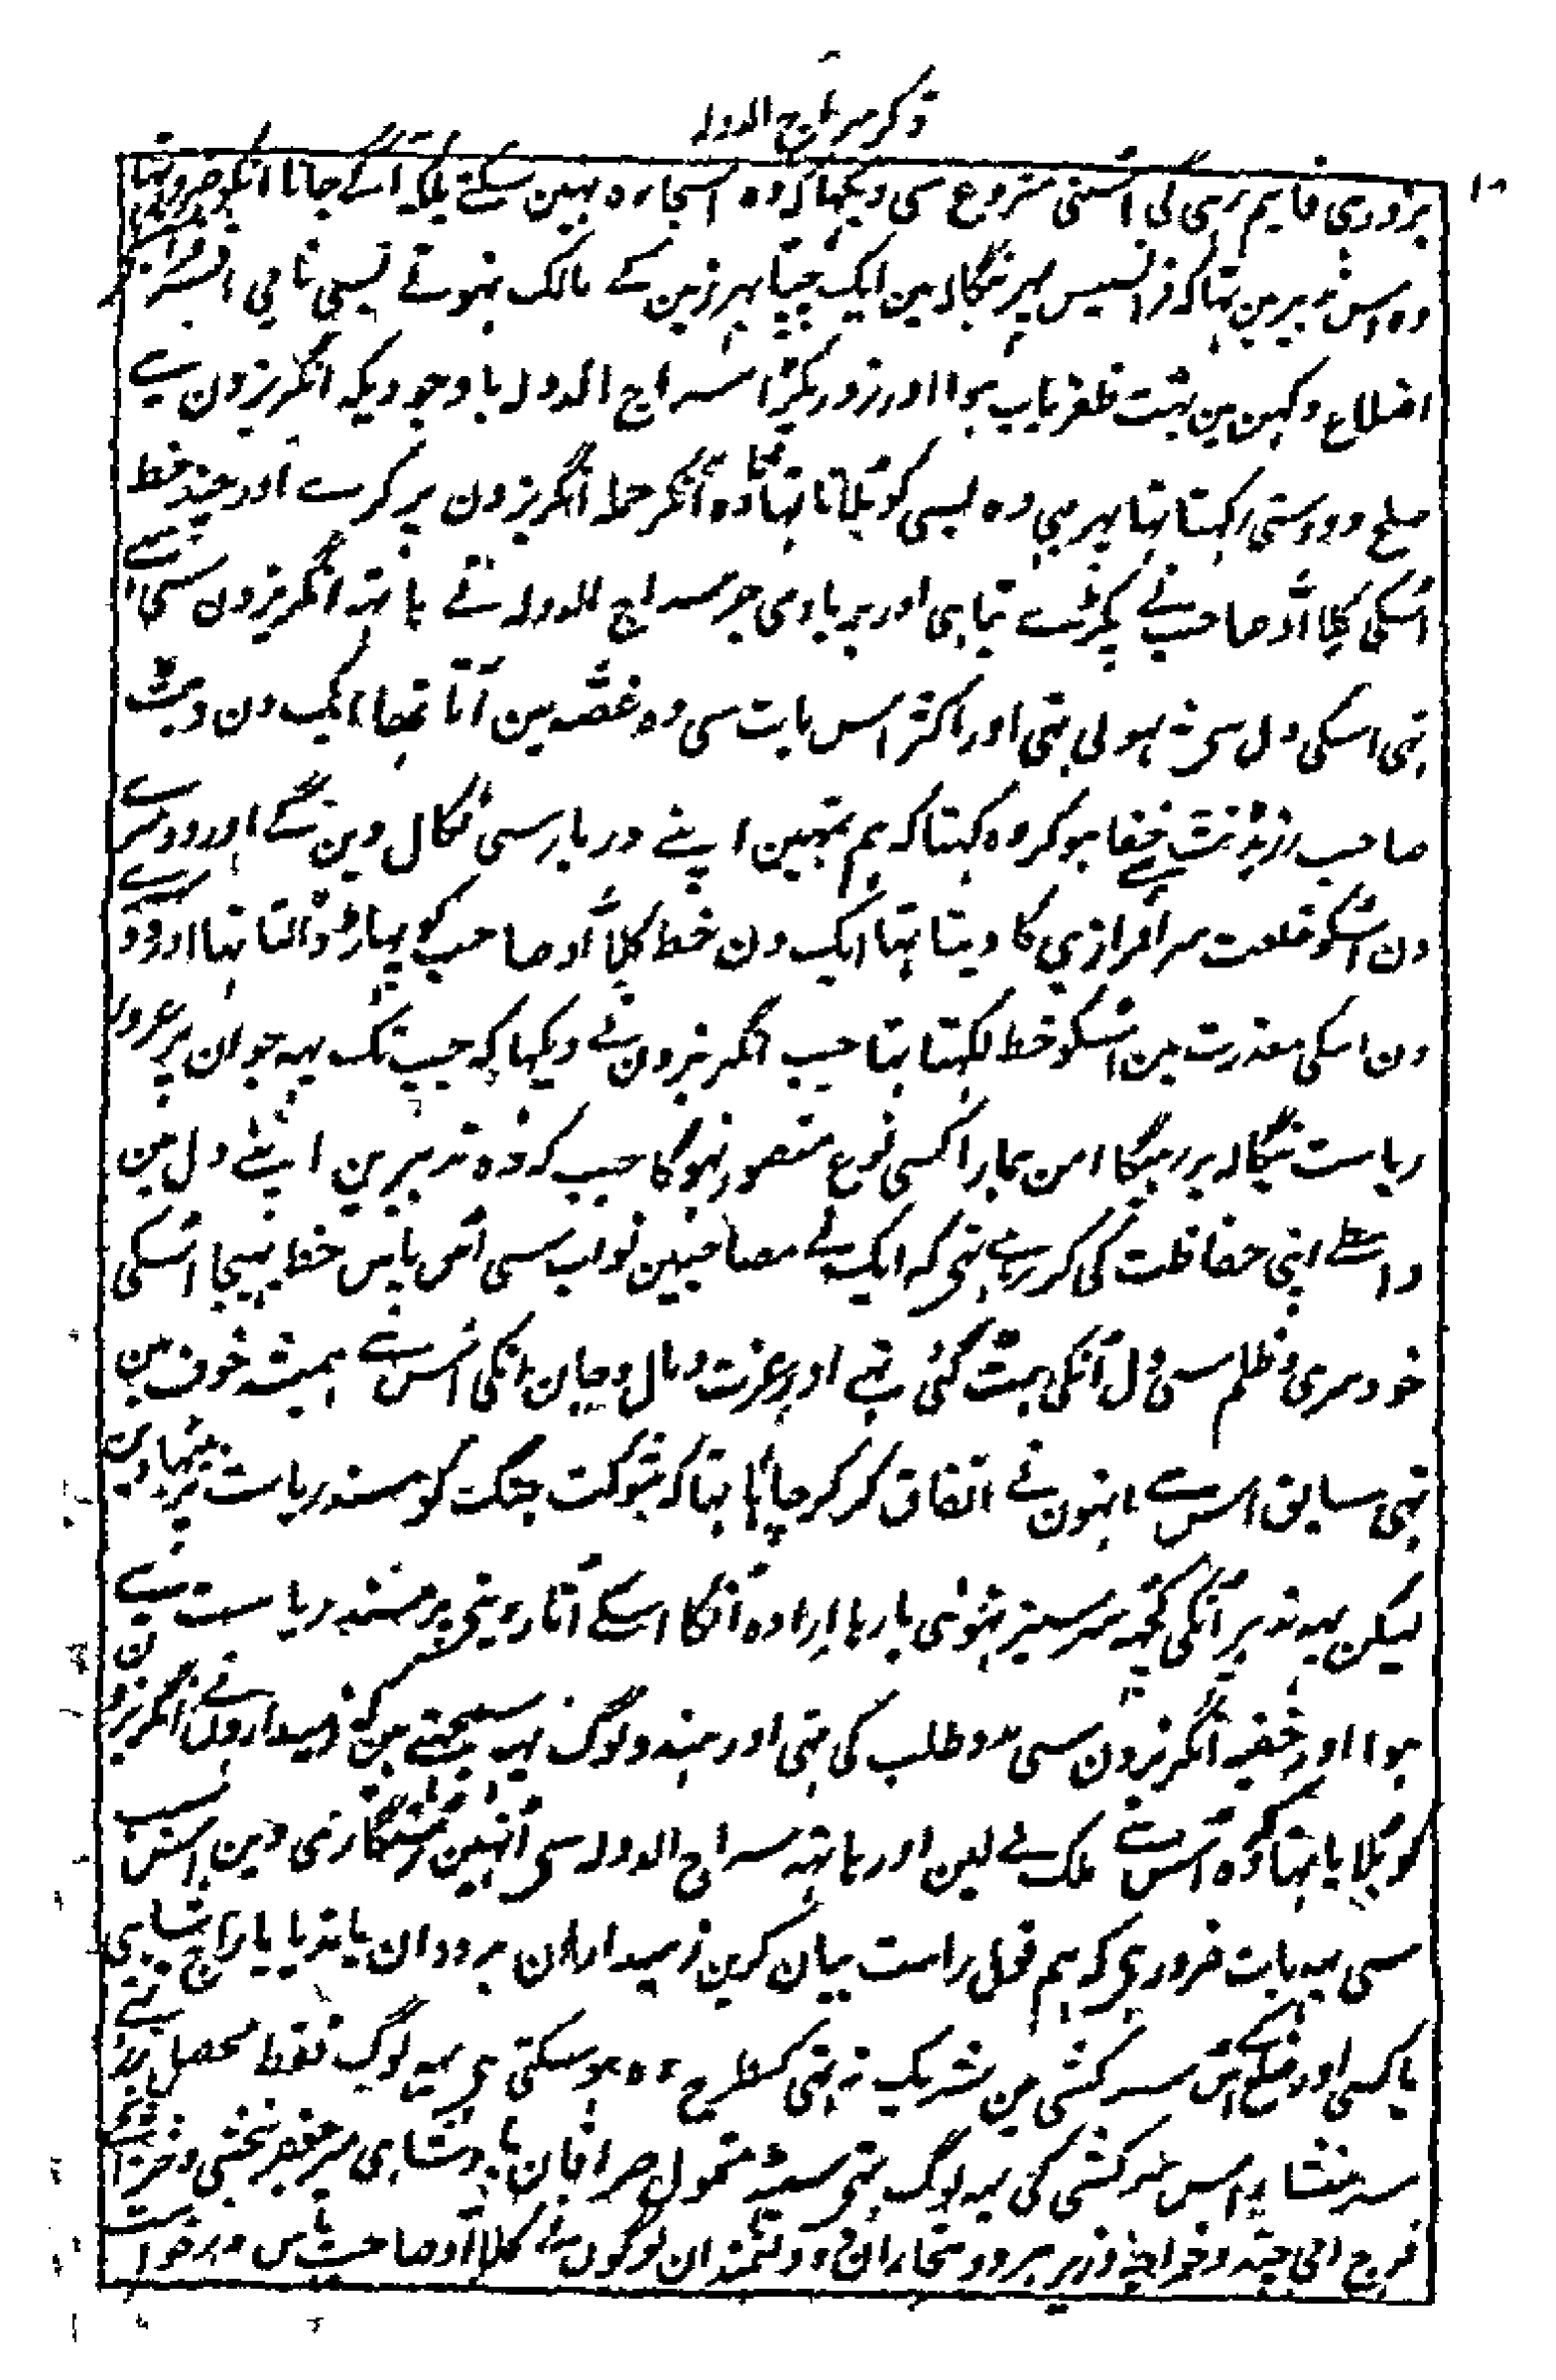 ذکر سراج الدولہ
۱۰
بزوری قایم رہی گی اسنی شروع سی دیکہا کہ وہ اسجا رہ نہین سکتے بلکہ آگے جانا انکو ضرور تہا
وہ اس تدبیر مین تہا کہ فرانسیس پہر بنگالہ مین ایک چپا بہر زمین کے مالک نہوتے بسی نامی افسر
اضلاع دکہن مین بہت ظفریاب ہوا اور زور پکڑا سراج الدولہ باوجودیکہ انگریزون سے
صلح و دوستی رکہتا تہا پہر بہی وہ بسی کو بلاتا تہا کہ وہ آنکر حملہ انگریزون پر کرے اور چند خط
اسکی کلاؤ صاحب نے پکڑے تباہی اور بربادی جو سراج الدولہ نے ہاتہ انگریزون سی
تہی اسکی دل سی نہ بہولی تہی اور اکثر اس بات سی وہ غصہ مین آتا تہا ایک دن
صاحب رزیڈنٹ سے خفا ہو کر وہ کہتا کہ ہم تمہین اپنے دربار سی نکال دین گے اور دوسرے
دن اسکو خلعت سرافرازی کا دیتا تہا ایک دن خط کلاؤ صاحب کو پہاڑ ڈالتا تہا اور دوسرے
دن اسکی معذرت مین اسکو خط لکہتا تہا جب انگریزون نے دیکہا کہ جب تک یہہ جوان پر غرور
ریاست بنگالہ پر رہیگا امن ہمارا کسی نوع متصور نہوگا جب کہ وہ تدبیرین اپنے دل مین
واسطے اپنی حفاظت کی کر رہے تہی کہ ایک نے مصاحبین نواب سی اس پاس خط بہیجا اسکی
خودسری و ظلم سی دل انکی ہٹ گئی تہے اور عزت و مال و جان انکی اس سے ہمیشہ خوف مین
تہی سابق اس سے انہون نے اتفاق کر کر چاہا تہا کہ شوکت جنگ کو مسند ریاست پر بٹہادین
لیکن یہہ تدبیر انکی کچہہ سرسبز نہوئی بارہا ارادہ انکا اسکے اتار دینی پر مسند ریاست سے
ہوا اور خفیہ انگریزون سی مدد طلب کی تہی اور ہندو لوگ یہہ سمجہتے ہین کہ زمیدارون نے انگریزون
کو بلایا تہا کہ وہ اس سے ملک لے لین اور ہاتہہ سراج الدولہ سی انہین رستگاری دین اس سبب
سی یہہ بات ضروری کہ ہم قول راست بیان کرین زمیداران بردوان یا ندیا یا راج شاہی
یا کسی اور ضلع کے اس سرکشی مین شریک نہ تہی کسطرح وہ ہو سکتی ہی یہہ لوگ فقط محصل زر تہے
سر منشاء اس سرکشی کی یہہ لوگ تہی سیٹہہ متمول صرافان بادشاہی میر جعفر بخشی و
فوج امی چند و خواجہ وزیر ہر دو تجاران دولتمند ان لوگون نے کلاؤ صاحب پاس درخواست